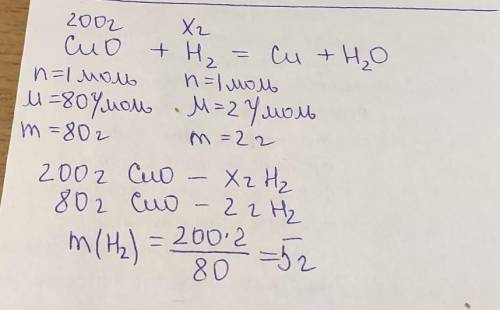 200г X г
CuO + H₂ = Cu + H₂O
n=1 моль n=1 моль
M=80 г/моль M=2 г/моль
m=80 г m=2 г
200 г CuO – X г H₂
80 г CuO – 2 г H₂
m(H₂) = 200·2/80 = 5 г